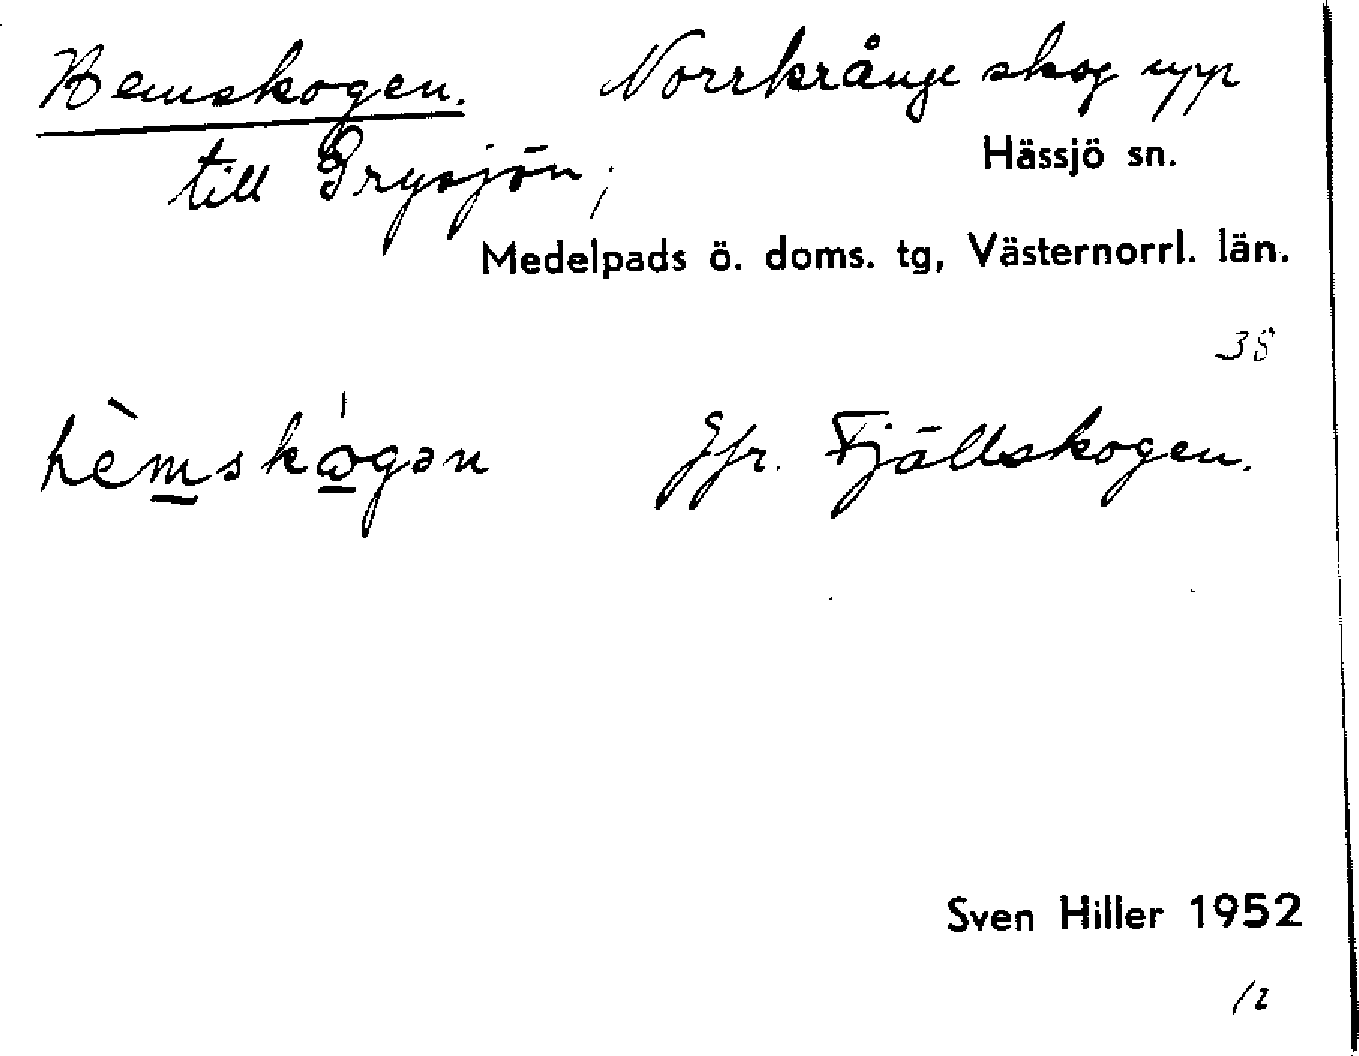 Hemskogen. Norrkrånge skog upp
Hässjö sn.
till Grysjön;
Medelpads ö. doms. tg, Västernorrl. län.
38
hèmskó̱gən Jfr. Fjällskogen.
Sven Hiller 1952
12